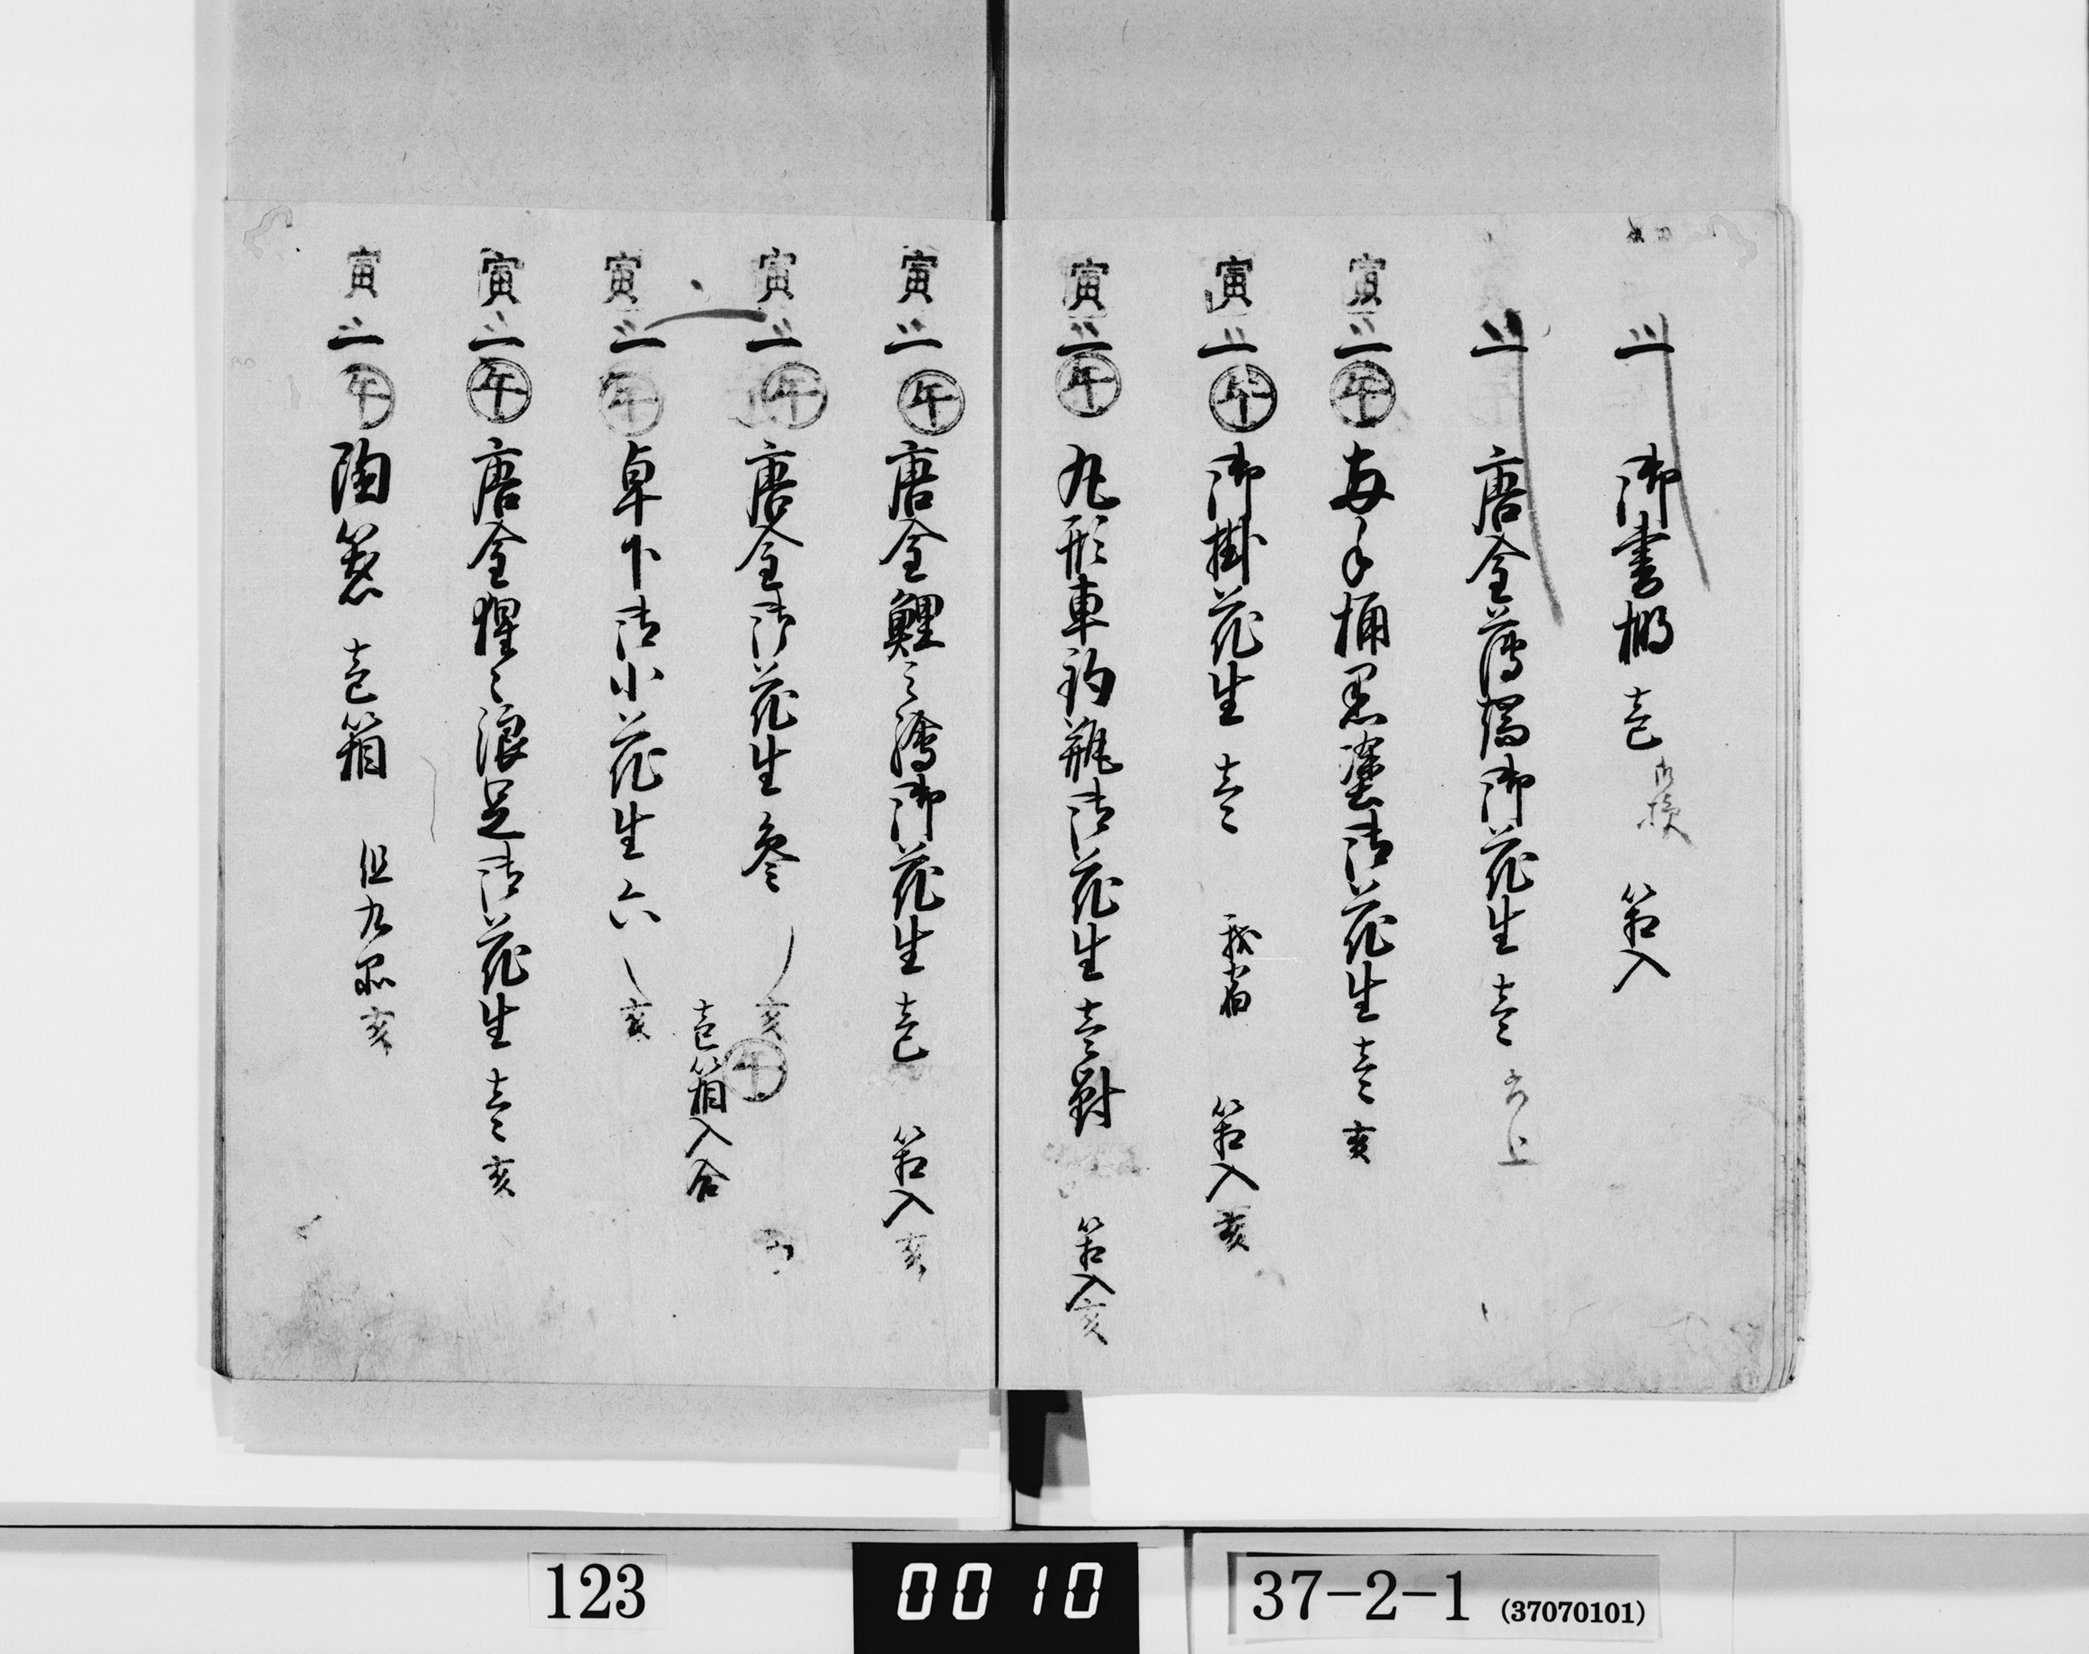 御書棚 壱 箱入
唐金薄端御花生 壱
寅 午 手桶黒塗御花生 壱 亥
寅 午 御掛花生 壱 箱入 亥
寅 午 丸形車釣瓶御花生 壱對 箱入 亥
寅 午 唐金鯉之 御花生 壱 箱入 亥
寅 午 唐金御花生 参 亥 午
壱箱入合
寅 午 卓下御小花生 六 亥
寅 午 唐金猩々浪足御花生 壱 亥
寅 午 陶 壱箱 但九 亥
123
0010
37-2-1 (37070101)